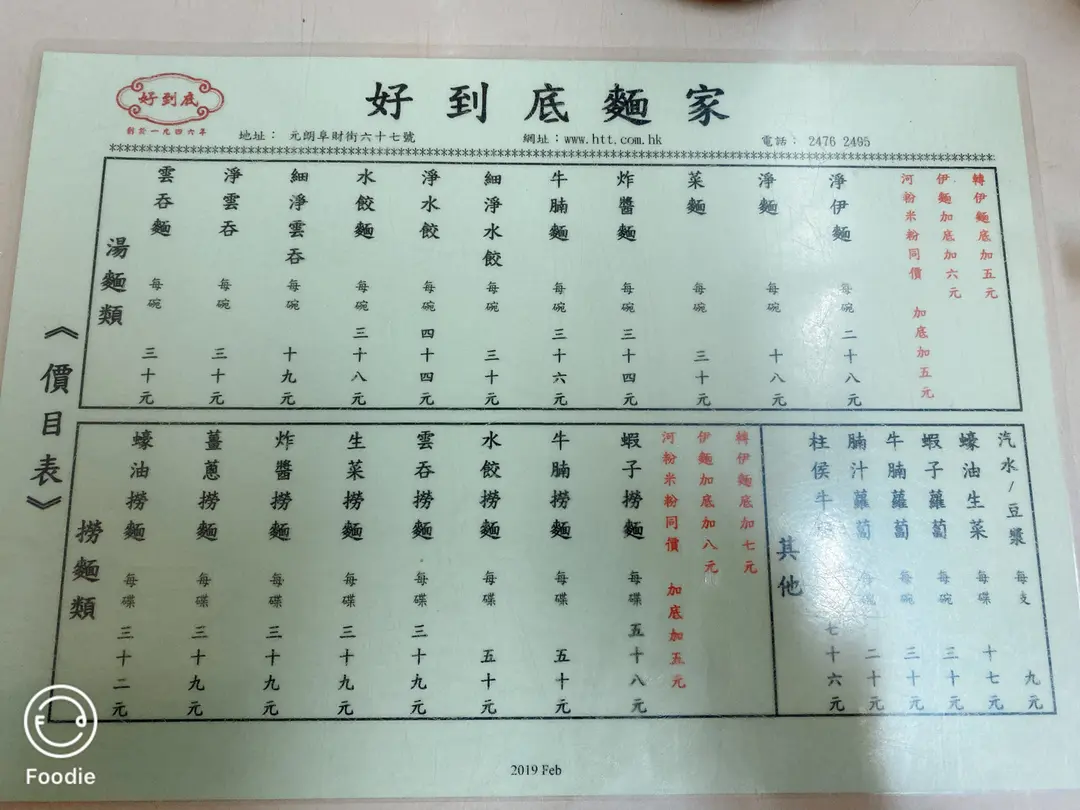 好到底
創於一九四六年
好到底麵家
地址： 元朗阜財街六十七號
網址：www.htt.com.hk
電話： 2476 2495
《價目表》
湯麵類
雲吞麵 每碗 三十元
淨雲吞 每碗 三十元
細淨雲吞 每碗 十九元
水餃麵 每碗 三十八元
淨水餃 每碗 四十四元
細淨水餃 每碗 三十元
牛腩麵 每碗 三十六元
炸醬麵 每碗 三十四元
菜麵 每碗 三十元
淨麵 每碗 十八元
淨伊麵 每碗 二十八元
河粉米粉同價 加底加五元
伊麵加底加六元
轉伊麵底加五元
撈麵類
蠔油撈麵 每碟 三十二元
薑蔥撈麵 每碟 三十九元
炸醬撈麵 每碟 三十九元
生菜撈麵 每碟 三十九元
雲吞撈麵 每碟 三十九元
水餃撈麵 每碟 五十元
牛腩撈麵 每碟 五十元
蝦子撈麵 每碟 五十八元
河粉米粉同價 加底加五元
伊麵加底加八元
轉伊麵底加七元
其他
柱侯牛 七十六元
腩汁蘿蔔 每碗 二十元
牛腩蘿蔔 每碗 三十元
蝦子蘿蔔 每碗 三十元
蠔油生菜 每碟 十七元
汽水/豆漿 每支 九元
2019 Feb
Foodie